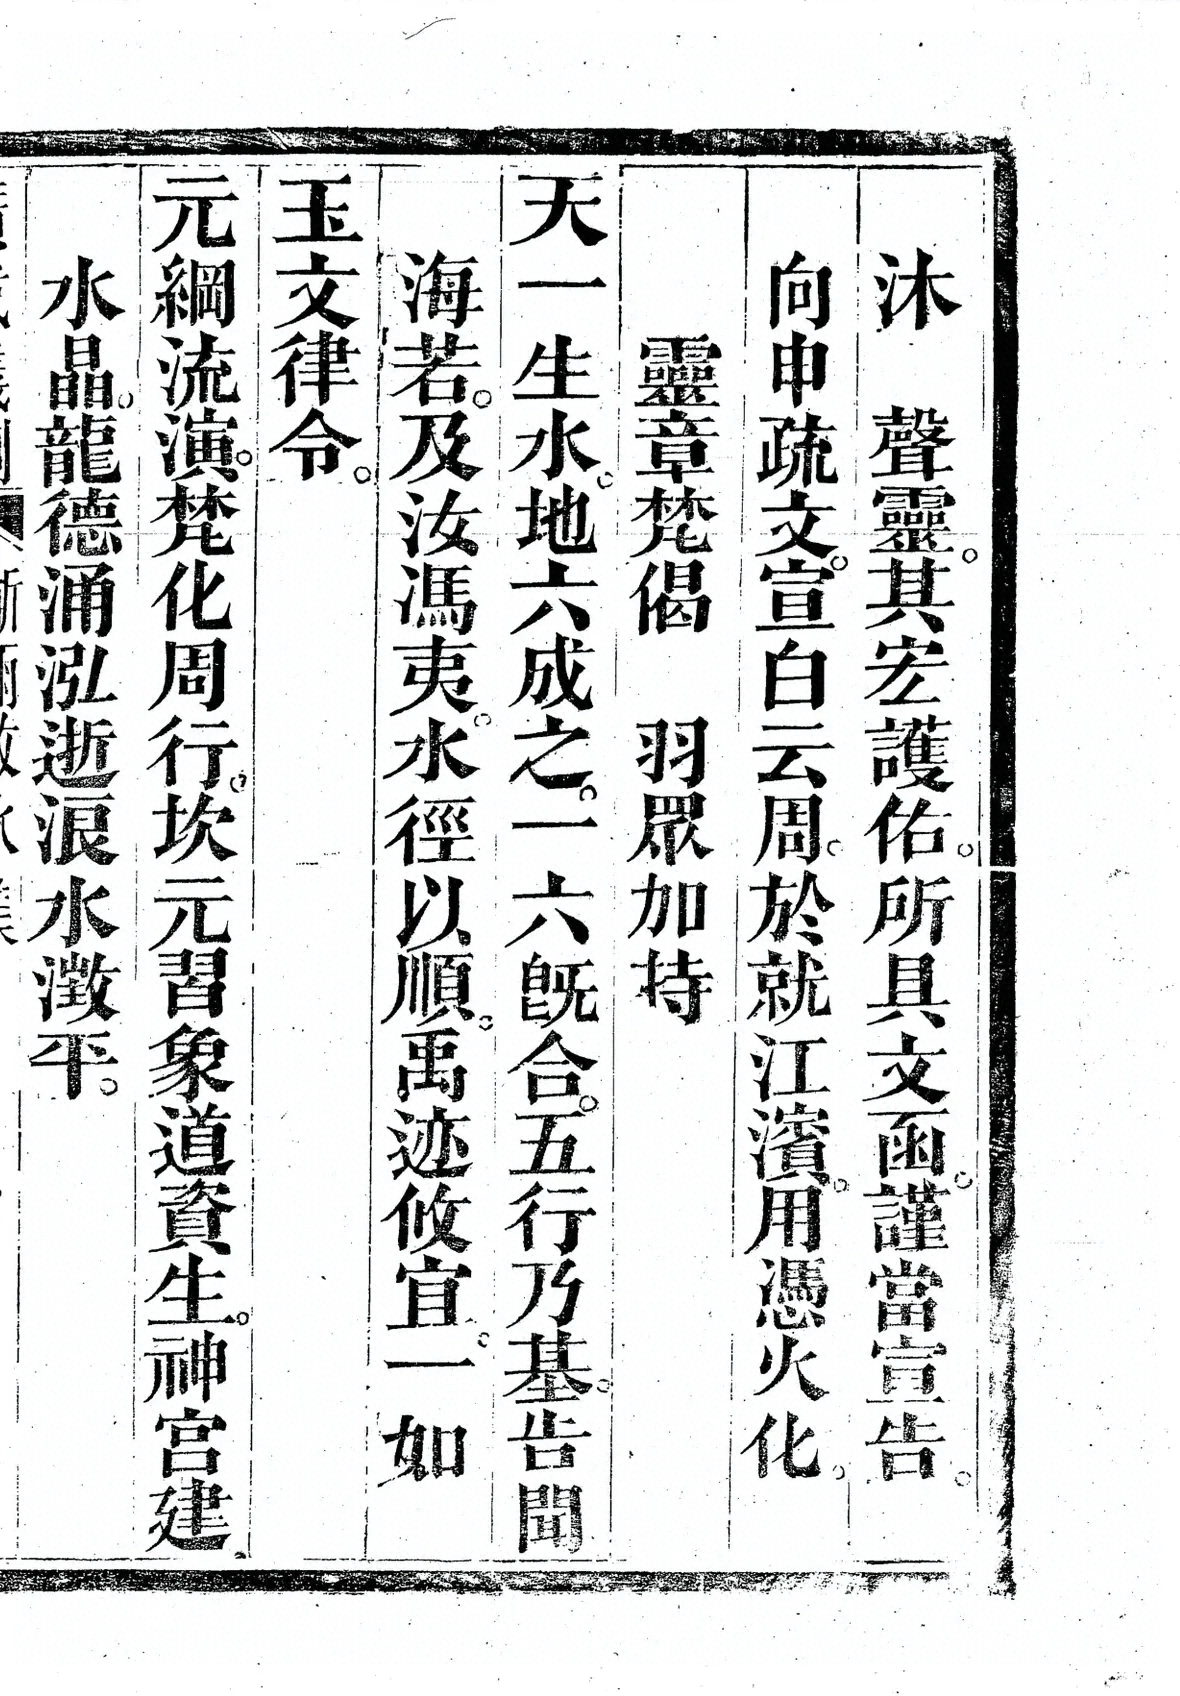 沐　聲靈。其宏護佑。所具文函。謹當宣告。
向申疏文。宣白云周。於就江濱。用憑火化。
靈章梵偈　羽眾加持
天一生水。地六成之。一六旣合。五行乃基。告聞
海若。及汝馮夷。水徑以順。禹迹攸宜。一如
玉文律令。
元綱流演。梵化周行。坎元習象道資生。神宮建
水晶。龍德涌泓逝浪水澂平。